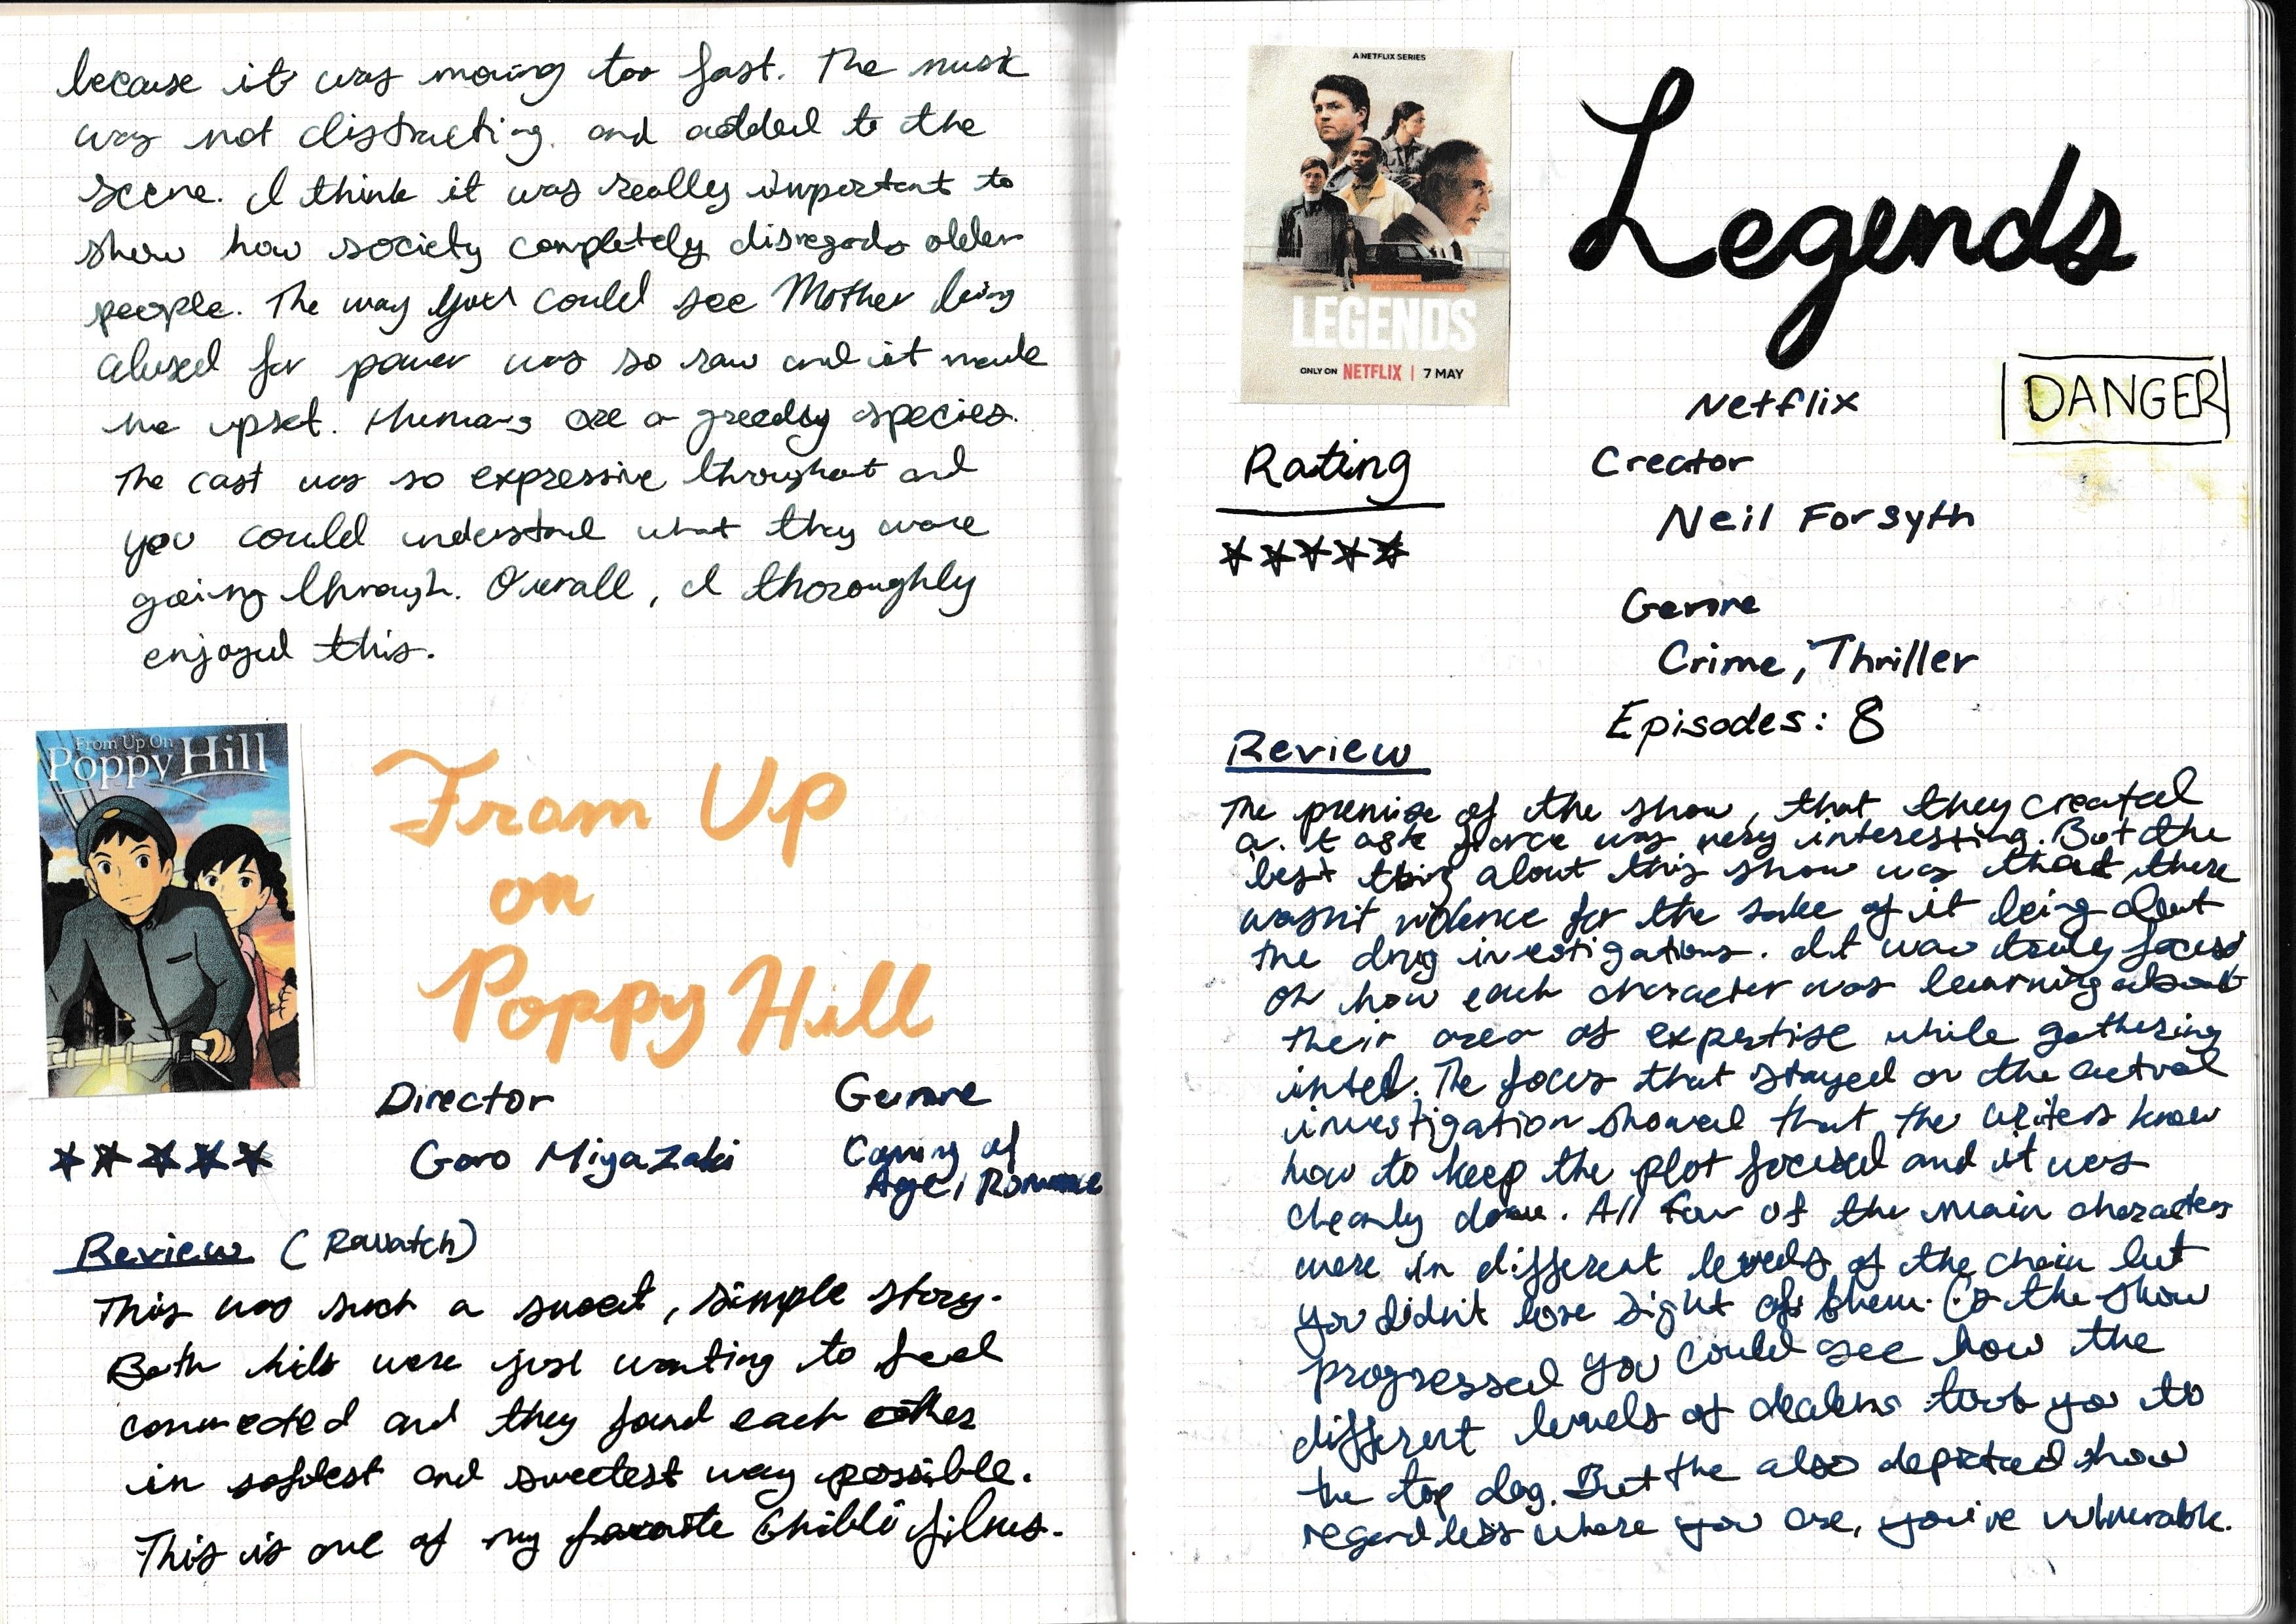 because it was moving too fast. The music
was not distracting. and added to the
scene. I think it was really important to
show how society completely disregards older
people. The way you could see Mother being
abused for power was so raw and it made
me upset. Humans are a greedy species.
The cast was so expressive throughout and
you could understand what they were
going through. Overall, I thoroughly
enjoyed this.
From Up On
Poppy Hill
From Up
on
Poppy Hill
Director
Goro Miyazaki
Genre
Coming of
Age, Romance
Review (Rewatch)
This was such a sweet, simple story.
Both kids were just wanting to feel
connected and they found each other
in softest and sweetest way possible.
This is one of my favorite Ghibli films.
A NETFLIX SERIES
LEGENDS
ONLY ON NETFLIX | 7 MAY
Legends
Netflix
DANGER
Creator
Neil Forsyth
Rating
Genre
Crime, Thriller
Episodes: 8
Review
The premise of the show, that they created
a. task force was very interesting. But the
best thing about this show was that there
wasn't violence for the sake of it being about
the drug investigations. It was truly focused
on how each character was learning about
their area of expertise while gathering
intel. The focus that stayed on the actual
investigation showed that the writers know
how to keep the plot focused and it was
cleanly done. All four of the main characters
were in different levels of the chain but
you didn't lose sight of them. As the show
progressed you could see how the
different levels of dealers took you to
the top dog. But the also depicted how
regardless where you are, you're vulnerable.